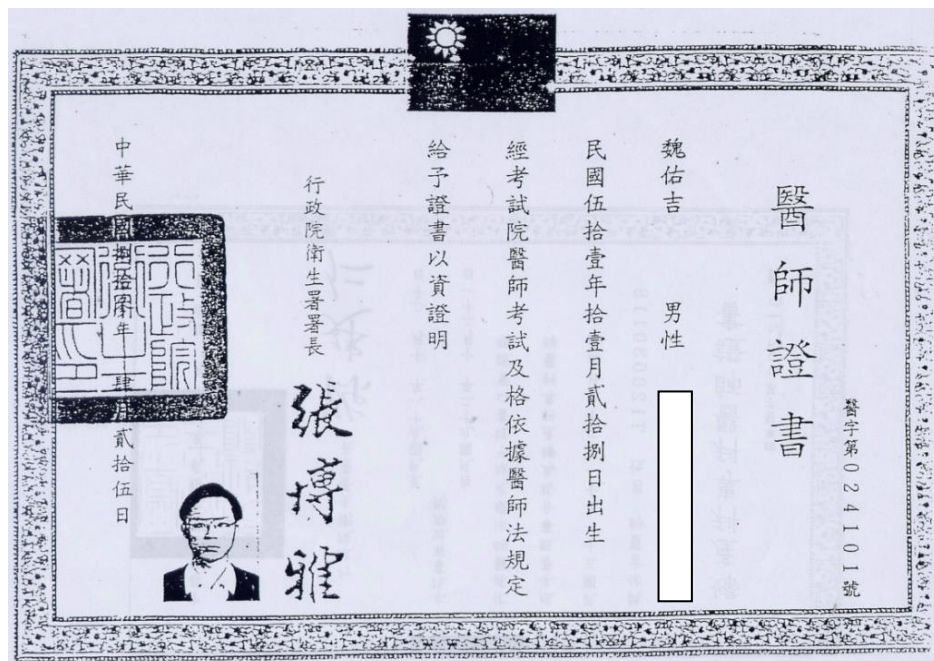 醫師證書
醫字第024101號
魏佑吉 男性
民國伍拾壹年拾壹月貳拾捌日出生
經考試院醫師考試及格依據醫師法規定
給予證書以資證明
行政院衛生署署長
張博雅
中華民國捌拾年肆月貳拾伍日
行政院